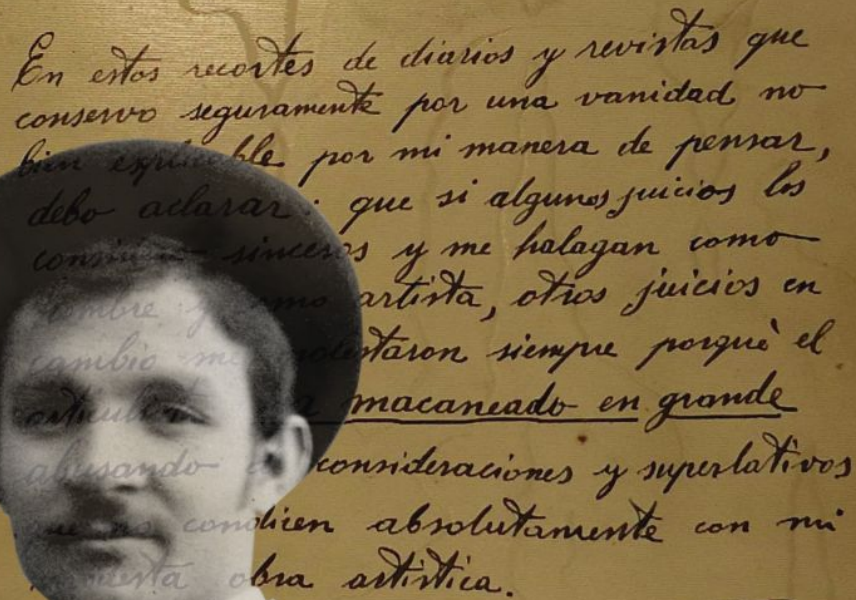 En estos recortes de diarios y revistas que
conservo seguramente por una vanidad no
bien explicable por mi manera de pensar,
debo aclarar: que si algunos juicios los
considero sinceros y me halagan como
hombre y como artista, otros juicios en
cambio me molestaron siempre porquè el
articulista macaneado en grande
abusando consideraciones y superlativos
que no condicen absolutamente con mi
modesta obra artística.